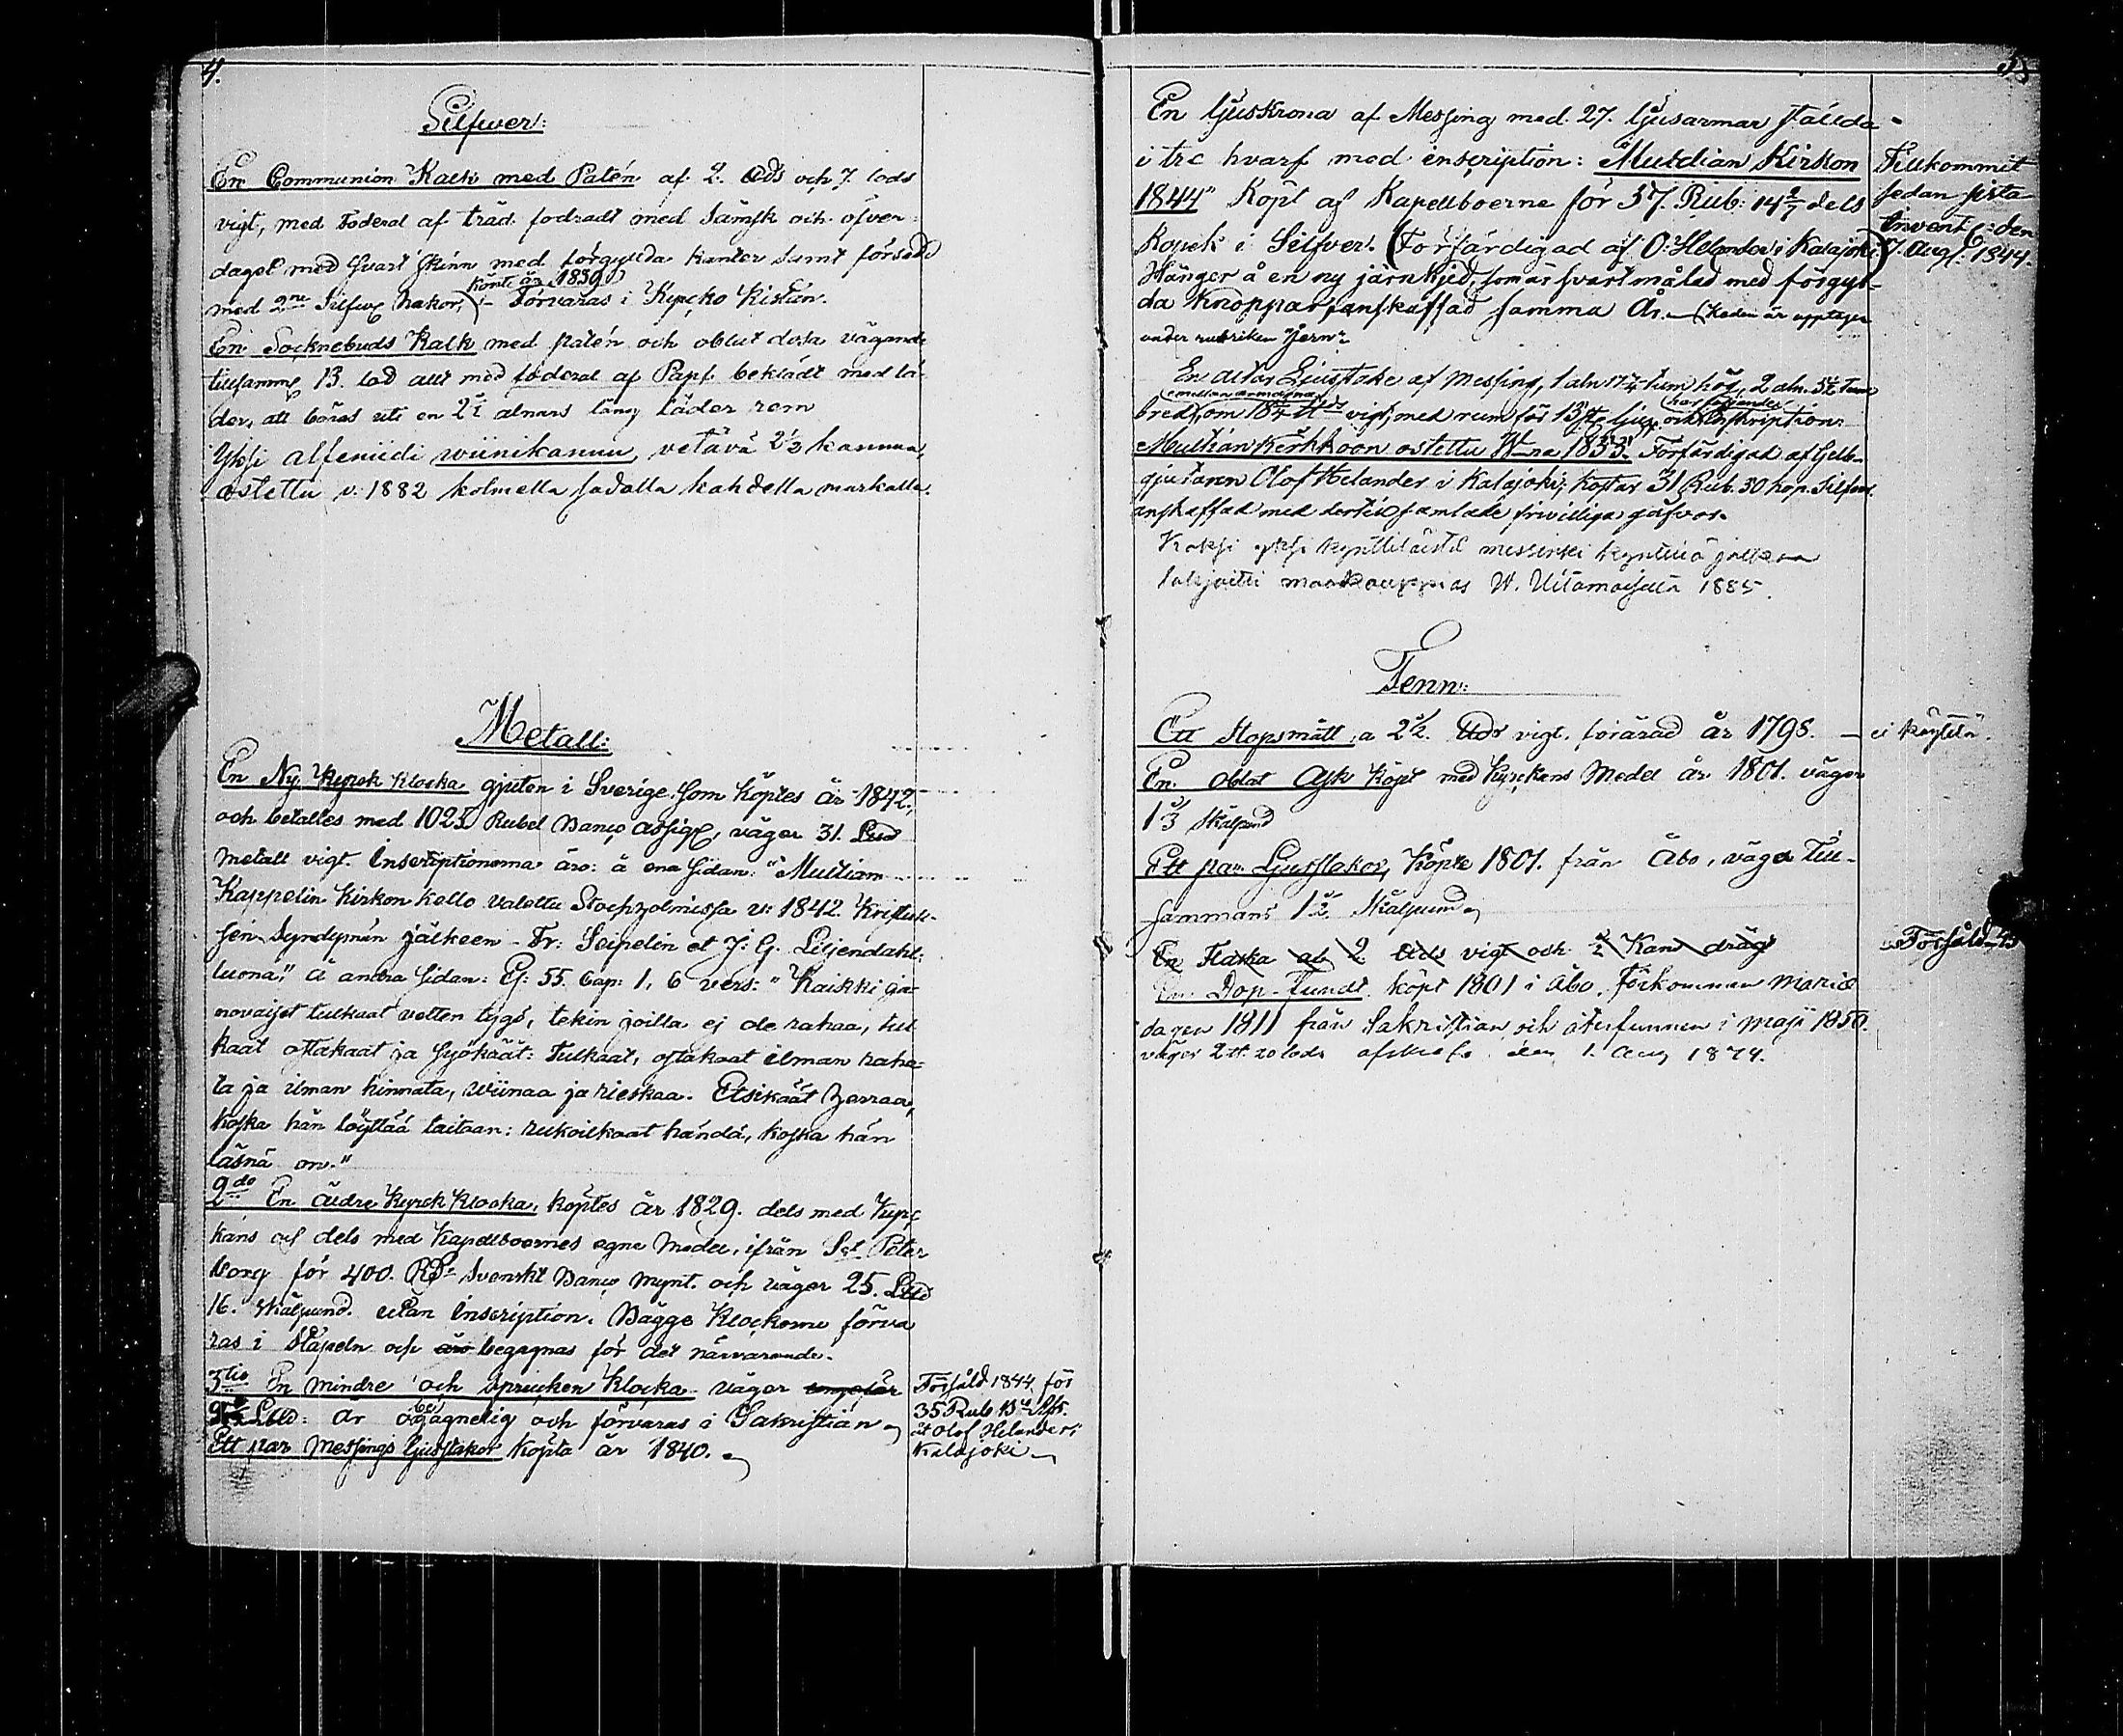 4.
Silfwer:
En Communion Kalk med Patén af 2. och 7. lods
vigt, med Foderal af träd fodradt med Sämsk och öfver-
dagel med svart skinn med förgyllda kanter samt försedd
köpt är 1839
med 2ne Silfw hakor, – Förvaras i Kyrcko Kistan.
En Socknebuds Kalk med patén och oblat dosa vägande
tillsamm 13. lod allt med foderal af Papp beklädt med lä-
der, att bäras uti en 2½ alnars lång läder rem
Yksi alfeniidi wiinikannu, vetävä 2½ kannua,
ostettu v. 1882 kolmella sadalla kahdella markalla.
Metall:
En Ny Kyrck Klocka gjuten i Sverige som köptes år 1842,
och betaltes med 1025 Rubel Banco Assig, väger 31. Lud
metall vigt. Inscriptionerna äro: å ena sidan: "Multian
Kappelin Kirkon kello valettu Stockholmissa v: 1842. Kristuk-
sen Syndymän jälkeen – Fr: Seipelin et J: G. Liljendahl-
luona", å andra sidan: Es: 55. Cap: 1, 6 vers: "Kaikki ja-
novaiset tulkaat vetten tygö, tekin joilla ej ole rahaa, tul
kaat ostakaat ja syökäät: Tulkaat, ostakaat ilman raha-
ta ja ilman hinnata, wiinaa ja rieskaa. Etsikäät Herraa,
koska hän löyttää taitaan: rukoilkaat händä, koska hän
läsnä on."
2do En äldre Kyrck Klocka, köptes år 1829. dels med Kyrc
kans och dels med Kapellboernes egna Medel, ifrån St Peter
borg för 400. RD: Svenskt Banco Mynt. och väger 25. Lud
16. Skålpund. utan Inscription. Bägge Klockorne förva
ras i Stapeln och äro begagnas för det närvarande.
3tio En mindre och sprucken Klocka väger ungefär
Lud: är obegagnelig och förvaras i Sakristian
Ett par Messings ljusstakar köpta år 1840.
Försåld 1844 för
35 Rub
åt Olof Helander i
Kalajoki
En ljuskrona af Messing med 27. ljusarmar ställda
i tre hvarf med inscription: Mutdian Kirkon
1844" Köpt af Kapellboerne för 37. Rub: 14 2/7 dels
Kopek i Silfver. (Förfärdigad af O: Helander i Kalajoki)
Hänger å en ny järnkjed, som är svart målad med förgyl-
da knoppar, anskaffad samma År. (Keden är upptagen
under rubriken "Jern"
Tillkommit
sedan sista
Invent: den
7. Aug: 1844.
En altar Ljusstake af Messing, 1 aln 17¼ tum hög, 2 aln. 5½ tum
emellan armarna har följande
bred, om 18¼ vigt, med rum för 13 st ljus, och Inskription:
Multian Kerkkoon ostettu W–na 1853. Förfärdigad af Gelb-
gjutaren Olof Helander i Kalajoki; kostar 31 Rub. 30 kop. Silfver
anskaffad med dertill samlade frivilliga gåfvor.
Kaksi yksi kynttiläistä messinki kynttilä jalkaa
lahjoitti maakauppias W. Uitamoisella 1885.
Tenn:
Ett Stopsmått, a 2½. vigt. förärad år 1798. – ei käytetä.
En Oblat Ask köpt med Kyrckans Medel år 1801. väger
1⅓ Skålpund
Ett par Ljusstakar, köpte 1801. från Åbo, väga till-
sammans 1½ Skålpund
En Flaska af 2 vigt och ½ Kan drägt
Försåld
En Dop-Fundt köpt 1801 i Åbo. Förkommen Mariæ
dagen 1811 från Sakristian och återfunnen i Maji 1850.
väger 2 tt 20 lods afskrefs den 1. Aug 1874.